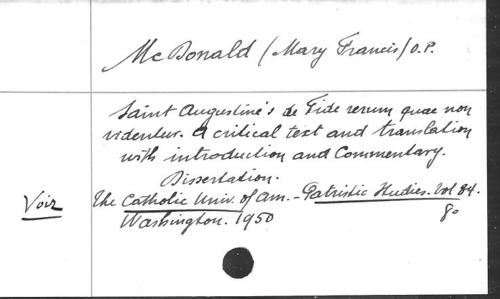 McDonald (Mary Francis) O.P.
Saint Augustine's de Fide rerum quae non
videntur. A critical text and translation
with introduction and Commentary.
Dissertation.
Voir The Catholic Univ. of Am. - Patristic Studies. Vol 84.
Washington. 1950 8o